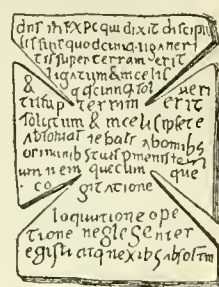 dns ihEXPC qui dixit discipu
lis suis quodcunq. ligaueri
tis super terram erit
ligatum & in celis
& qdcunq sol ueri
tis sup terram erit
solutum & in celis ipse te
absoluat abomibs
criminibs tuis
quecum que
co gitatione
loquutione ope
tione neglegenter
egisti atq nexibs